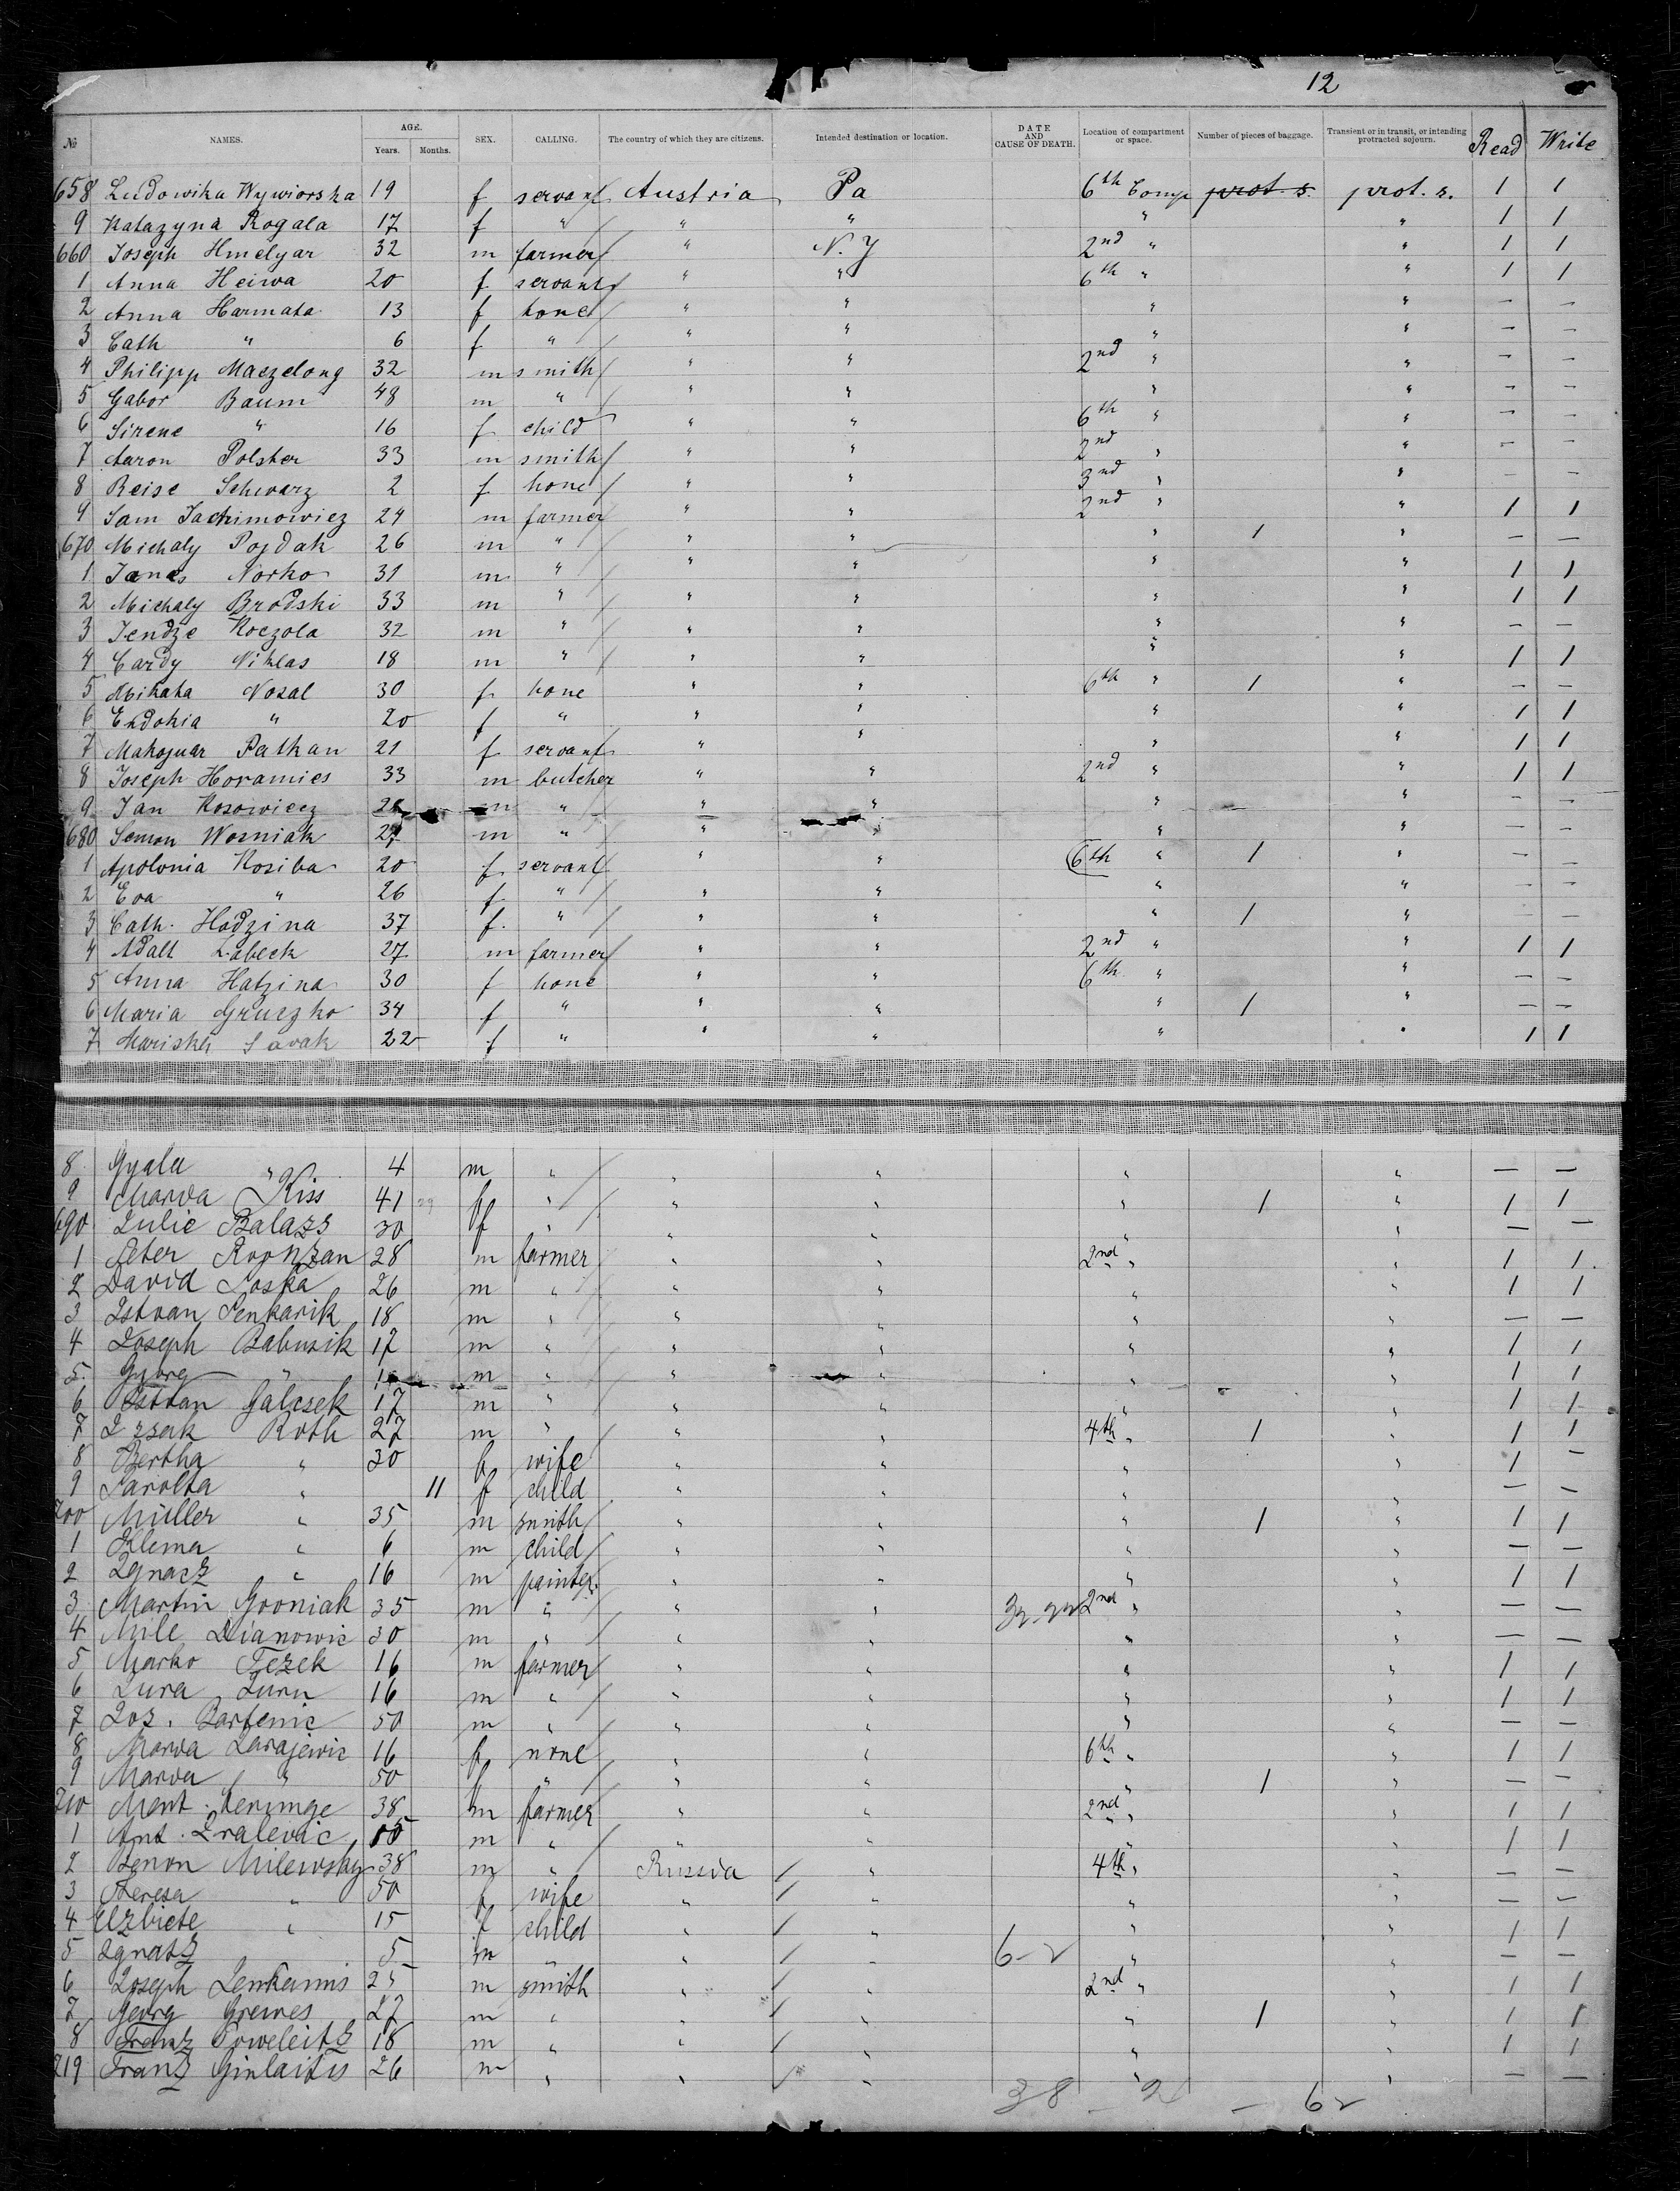 12
№ NAMES. AGE. Years. Months. SEX. CALLING. The country of which they are citizens. Intended destination or location. DATE AND CAUSE OF DEATH. Location of compartment or space. Number of pieces of baggage. Transient or in transit, or intending protracted sojourn. Read Write
658 Ludowika Wywiorska 19 f servant Austria Pa 6th Comp prot. s. prot. s. 1 1
9 Katazyna Rogala 17 f " " " " " 1 1
660 Joseph Hmelyar 32 m farmer " N.Y 2nd " " 1 1
1 Anna Heiwa 20 f servant " " 6th " " 1 1
2 Anna Harmata 13 f none " " " " — —
3 Cath " 6 f " " " " " — —
4 Philipp Maczelong 32 m smith " " 2nd " " — —
5 Gabor Baum 48 m " " " " " — —
6 Sirene " 16 f child " " 6th " " — —
7 Aaron Polster 33 m smith " " 2nd " " — —
8 Reise Schwarz 2 f none " " 3nd " " — —
9 Sam Jachimowicz 24 m farmer " " 2nd " " 1 1
670 Michaly Pojdak 26 m " " " " 1 " — —
1 Janos Norko 31 m " " " " " 1 1
2 Michaly Brodski 33 m " " " " " 1 1
3 Jendze Koczola 32 m " " " " " — —
4 Cardy Niklas 18 m " " " " " 1 1
5 Mikata Nosal 30 f none " " 6th " 1 " — —
6 Eudokia " 20 f " " " " " 1 1
7 Patkan 21 f servant " " " " 1 1
8 Joseph Horamies 33 m butcher " " 2nd " " 1 1
9 Jan Kosowicz m " " " " " — —
680 Semon Wosniak 27 m " " " " " — —
1 Apolonia Kosiba 20 f servant " " 6th " 1 " — —
2 Eva " 26 f " " " " " — —
3 Cath. Hodzina 37 f. " " " " 1 " — —
4 Adalt Labeck 27 m farmer " " 2nd " " 1 1
5 Anna Hatzina 30 f none " " 6th " " — —
6 Maria Gruczko 34 f " " " " 1 " — —
7 Mariska Savak 22 f " " " " " 1 1
8 Gyula " 4 m " " " " " — —
9 Marva Kiss 41 f " " " " 1 " 1 1
690 Julie Balazs 30 f " " " " " — —
1 Peter 28 m farmer " " 2nd " " 1 1
2 David Soska 26 m " " " " " 1 1
3 Istvan Senkarik 18 m " " " " " — —
4 Joseph Babusik 17 m " " " " " 1 1
5 Györg " m " " " " " 1 1
6 Istvan Galcsek 17 m " " " " " 1 1
7 Izsak Roth 27 m " " " 4th " 1 " 1 1
8 Bertha " 20 f wife " " " " 1 —
9 Sarolta " 11 f child " " " " — —
700 Müller " 35 m smith " " " 1 " 1 1
1 Klema " 6 m child " " " " — —
2 Ignacz " 16 m painter " " " " 1 1
3 Martin Grooniak 35 m " " " 2nd " " — —
4 Mile Dianowic 30 m " " " " " — —
5 Marko Tezek 16 m farmer " " " " 1 1
6 Jura Juru 16 m " " " " " 1 1
7 Jos. Barfenic 50 m " " " " " — —
8 Marva Larajewic 16 f none " " 6th " " 1 1
9 Marva " 50 f " " " " 1 " — —
710 Ment. 38 m farmer " " 2nd " " 1 1
1 Ant. Kralevic m " " " " " 1 1
2 Benon Milewsky 38 m " Russia " 4th " " — —
3 Theresa " 50 f wife " " " " — —
4 Elzbiete " 15 f child " " " " 1 1
5 Ignatz 5 m " " " 6-2 " " — —
6 Joseph Lenkamis 25 m smith " " 2nd " " 1 1
7 Georg Grewes 27 m " " " " 1 " 1 1
8 Franz Poweleitz 18 m " " " " " 1 1
719 Franz Ginlaitis 26 m " " " " " — —
38 — 2 — 62